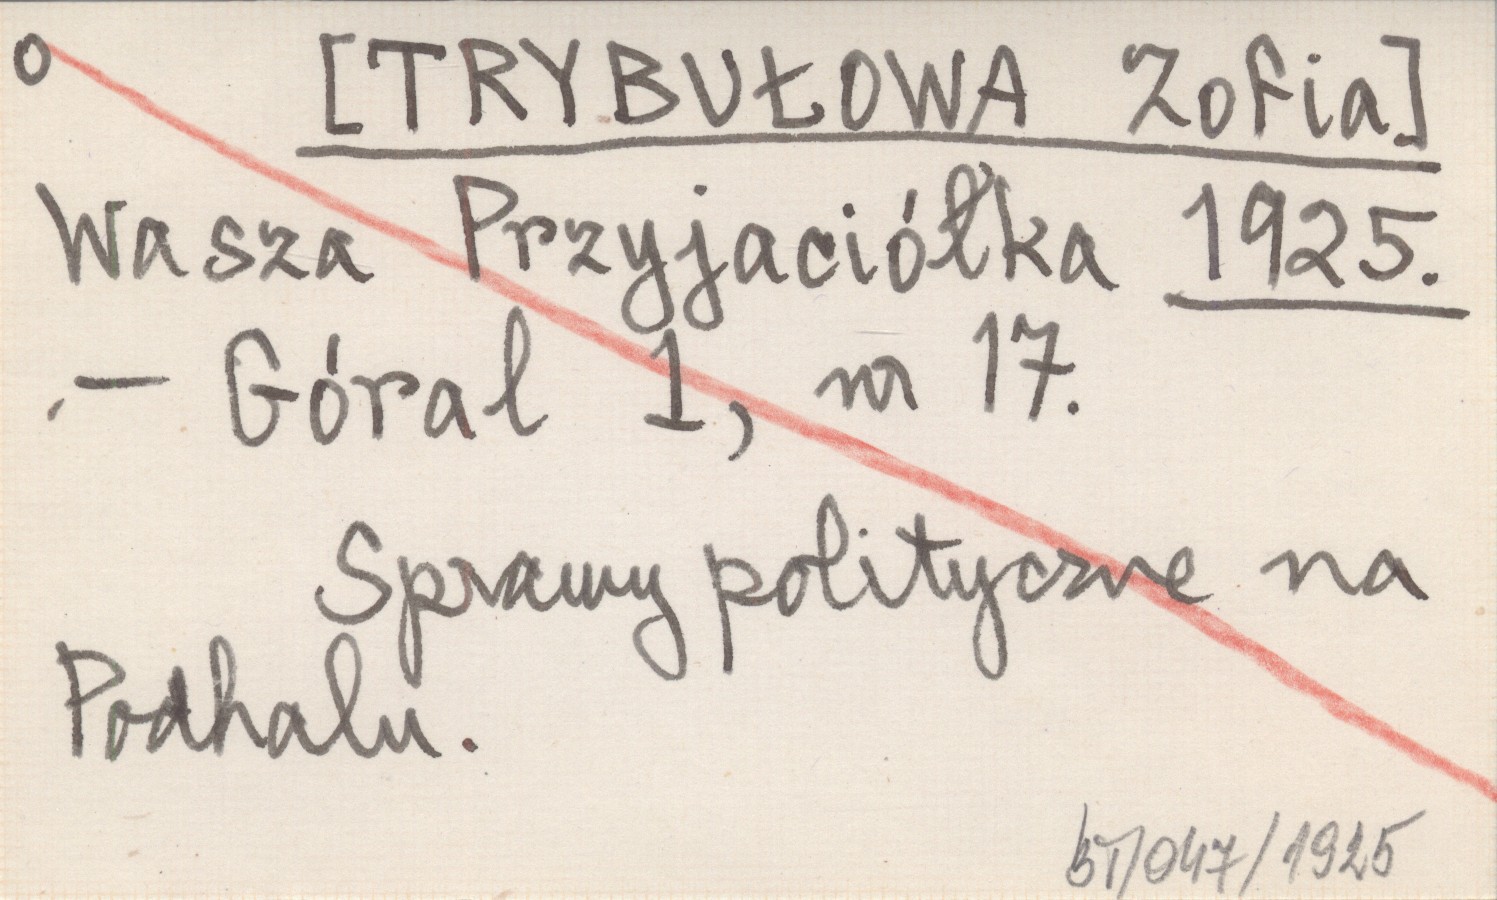 o [TRYBUŁOWA Zofia]
Wasza Przyjaciółka 1925.
.— Góral 1, nr 17.
Sprawy polityczne na
Podhalu.
BT/047/1925